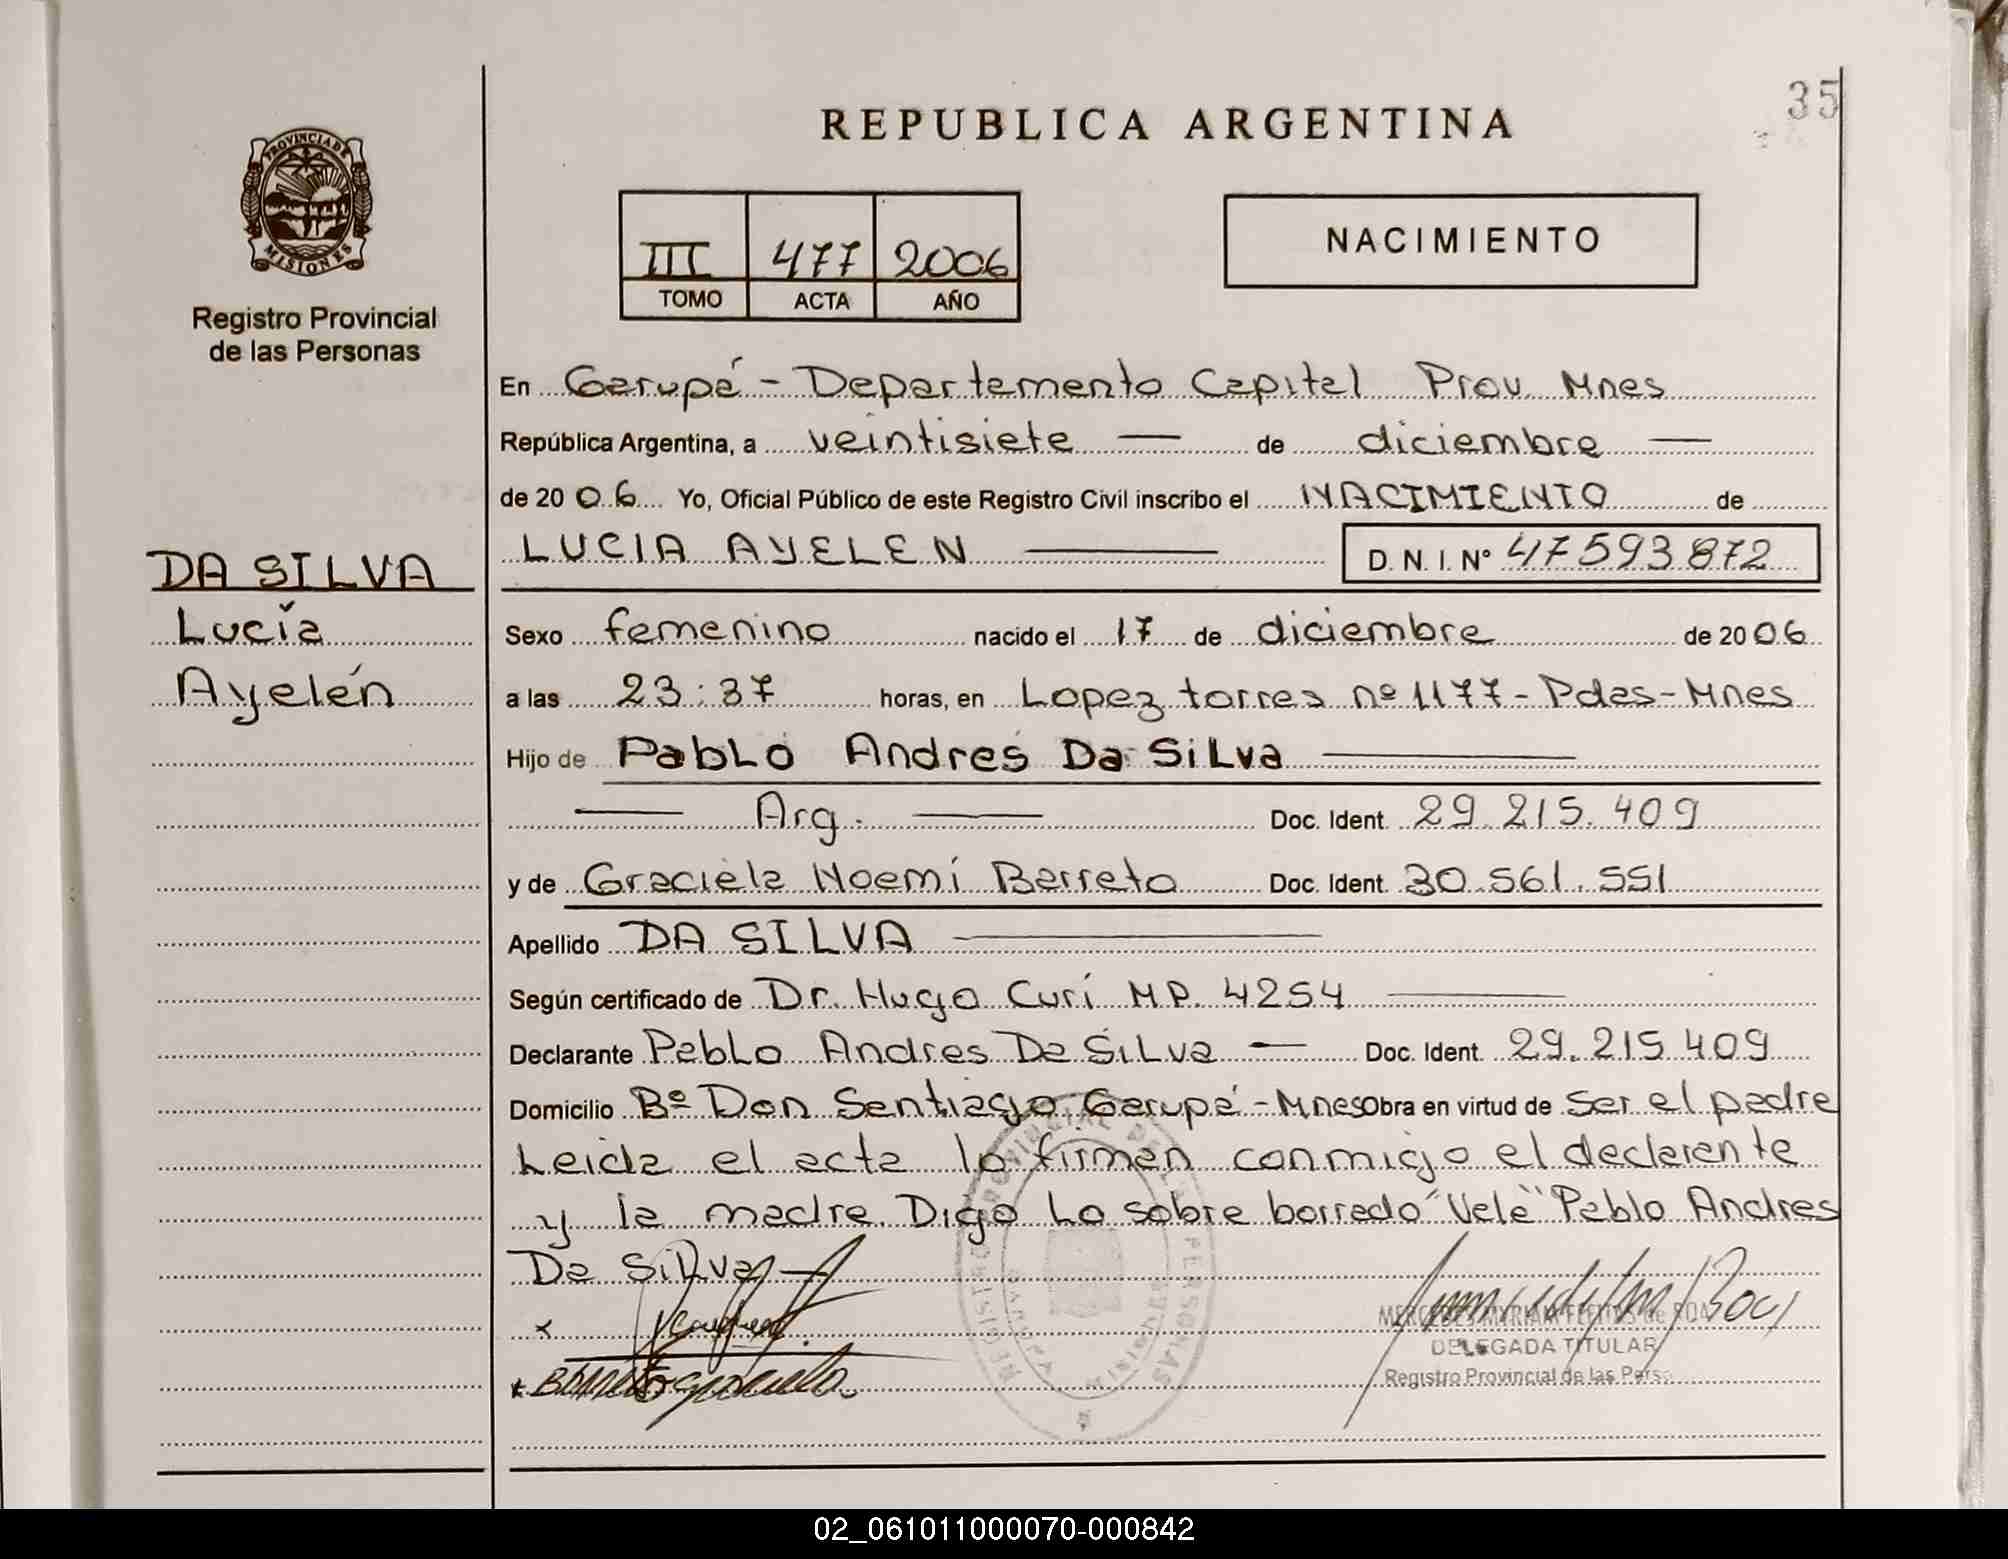 35
REPUBLICA ARGENTINA
PROVINCIA DE
MISIONES
Registro Provincial
de las Personas
III 477 2006
TOMO ACTA AÑO
NACIMIENTO
En Garupá - Departamento Capital Prov. Mnes
República Argentina, a veintisiete — de diciembre —
de 2006 Yo, Oficial Público de este Registro Civil inscribo el NACIMIENTO de
LUCIA AYELEN — D.N.I. Nº 47593872
DA SILVA
Lucía
Ayelén
Sexo femenino nacido el 17 de diciembre de 2006
a las 23:37 horas, en Lopez torres nº 1177 - Pdas - Mnes
Hijo de Pablo Andres Da Silva —
— Arg. — Doc. Ident. 29.215.409
y de Graciela Noemí Barreto Doc. Ident. 30.561.551
Apellido DA SILVA —
Según certificado de Dr. Hugo Curi MP. 4254 —
Declarante Pablo Andres Da Silva — Doc. Ident. 29.215.409
Domicilio Bº Don Santiago Garupá - Mnes Obra en virtud de ser el padre
Leida el acta la firman conmigo el declarante
y la madre. Digo Lo sobre borrado "Vale" Pablo Andres
Da Silva —
x
x Barreto Graciela
REGISTRO PROVINCIAL DE LAS PERSONAS
DELEGADA TITULAR
Registro Provincial de las Pers
02_061011000070-000842